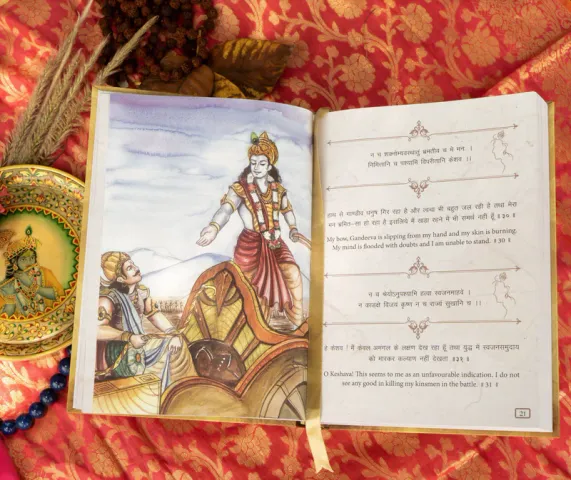 न च शक्नोम्यवस्थातुं भ्रमतीव च मे मनः ।
निमित्तानि च पश्यामि विपरीतानि केशव ।।
हाथ से गाण्डीव धनुष गिर रहा है और त्वचा भी बहुत जल रही है तथा मेरा
मन भ्रमित-सा हो रहा है इसलिये मैं खड़ा रहने में भी समर्थ नहीं हूँ ॥३०॥
My bow, Gandeeva is slipping from my hand and my skin is burning.
My mind is flooded with doubts and I am unable to stand. ॥30॥
न च श्रेयोऽनुपश्यामि हत्वा स्वजनमाहवे ।
न काङ्क्षे विजयं कृष्ण न च राज्यं सुखानि च ।।
हे केशव ! मैं केवल अमंगल के लक्षण देख रहा हूँ तथा युद्ध में स्वजनसमुदाय
को मारकर कल्याण नहीं देखता ॥३१॥
O Keshava! This seems to me as an unfavourable indication. I do not
see any good in killing my kinsmen in the battle. ॥31॥
21